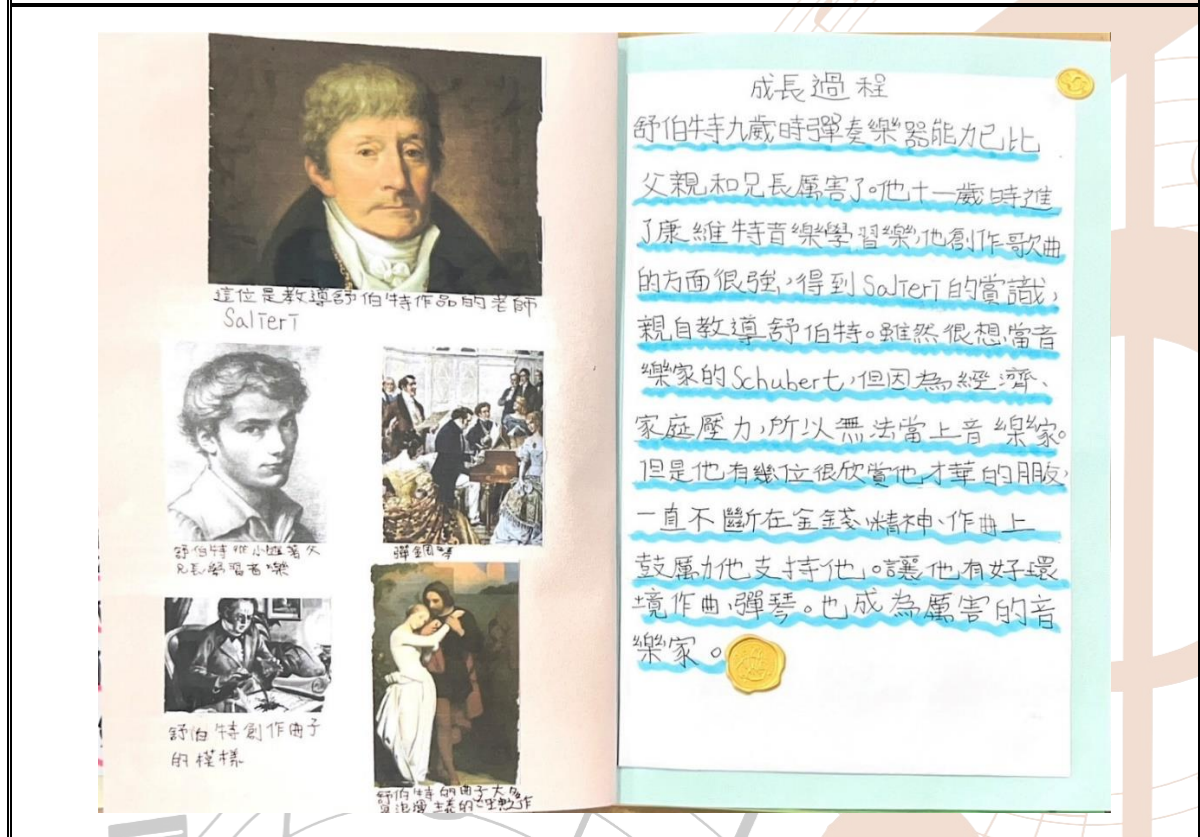 這位是教導舒伯特作品的老師
Salieri
舒伯特從小跟著父
兄長學習音樂
彈鋼琴
舒伯特創作曲子
的模樣
舒伯特的曲子大多
是浪漫主義的
成長過程
舒伯特九歲時彈奏樂器能力已比
父親和兄長厲害了。他十一歲時進
了康維特音樂學習樂,他創作歌曲
的方面很強,得到Salieri的賞識,
親自教導舒伯特。雖然很想當音
樂家的Schubert,但因為經濟、
家庭壓力,所以無法當上音樂家。
但是他有幾位很欣賞他才華的朋友,
一直不斷在金錢、精神、作曲上
鼓勵他支持他。讓他有好環
境作曲、彈琴。也成為厲害的音
樂家。